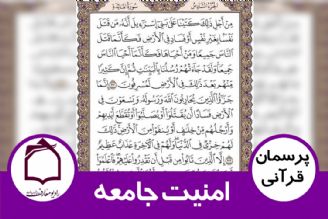 الجزء السادس سورة المائدة
مِنْ أَجْلِ ذَٰلِكَ كَتَبْنَا عَلَىٰ بَنِي إِسْرَٰٓءِيلَ أَنَّهُۥ مَن قَتَلَ
نَفْسًۢا بِغَيْرِ نَفْسٍ أَوْ فَسَادٍ فِي ٱلْأَرْضِ فَكَأَنَّمَا قَتَلَ
ٱلنَّاسَ جَمِيعًا وَمَنْ أَحْيَاهَا فَكَأَنَّمَآ أَحْيَا ٱلنَّاسَ
جَمِيعًا وَلَقَدْ جَآءَتْهُمْ رُسُلُنَا بِٱلْبَيِّنَٰتِ ثُمَّ إِنَّ كَثِيرًا
مِّنْهُم بَعْدَ ذَٰلِكَ فِي ٱلْأَرْضِ لَمُسْرِفُونَ إِنَّمَا
جَزَٰٓؤُا۟ ٱلَّذِينَ يُحَارِبُونَ ٱللَّهَ وَرَسُولَهُۥ وَيَسْعَوْنَ فِي
ٱلْأَرْضِ فَسَادًا أَن يُقَتَّلُوٓا۟ أَوْ يُصَلَّبُوٓا۟ أَوْ تُقَطَّعَ أَيْدِيهِمْ
وَأَرْجُلُهُم مِّنْ خِلَٰفٍ أَوْ يُنفَوْا۟ مِنَ ٱلْأَرْضِ ذَٰلِكَ
لَهُمْ خِزْيٌ فِي ٱلدُّنْيَا وَلَهُمْ فِي ٱلْأَخِرَةِ عَذَابٌ عَظِيمٌ
إِلَّا ٱلَّذِينَ تَابُوا۟ مِن قَبْلِ أَن تَقْدِرُوا۟ عَلَيْهِمْ فَٱعْلَمُوٓا۟
پرسمان
قرآنی
امنیت جامعه